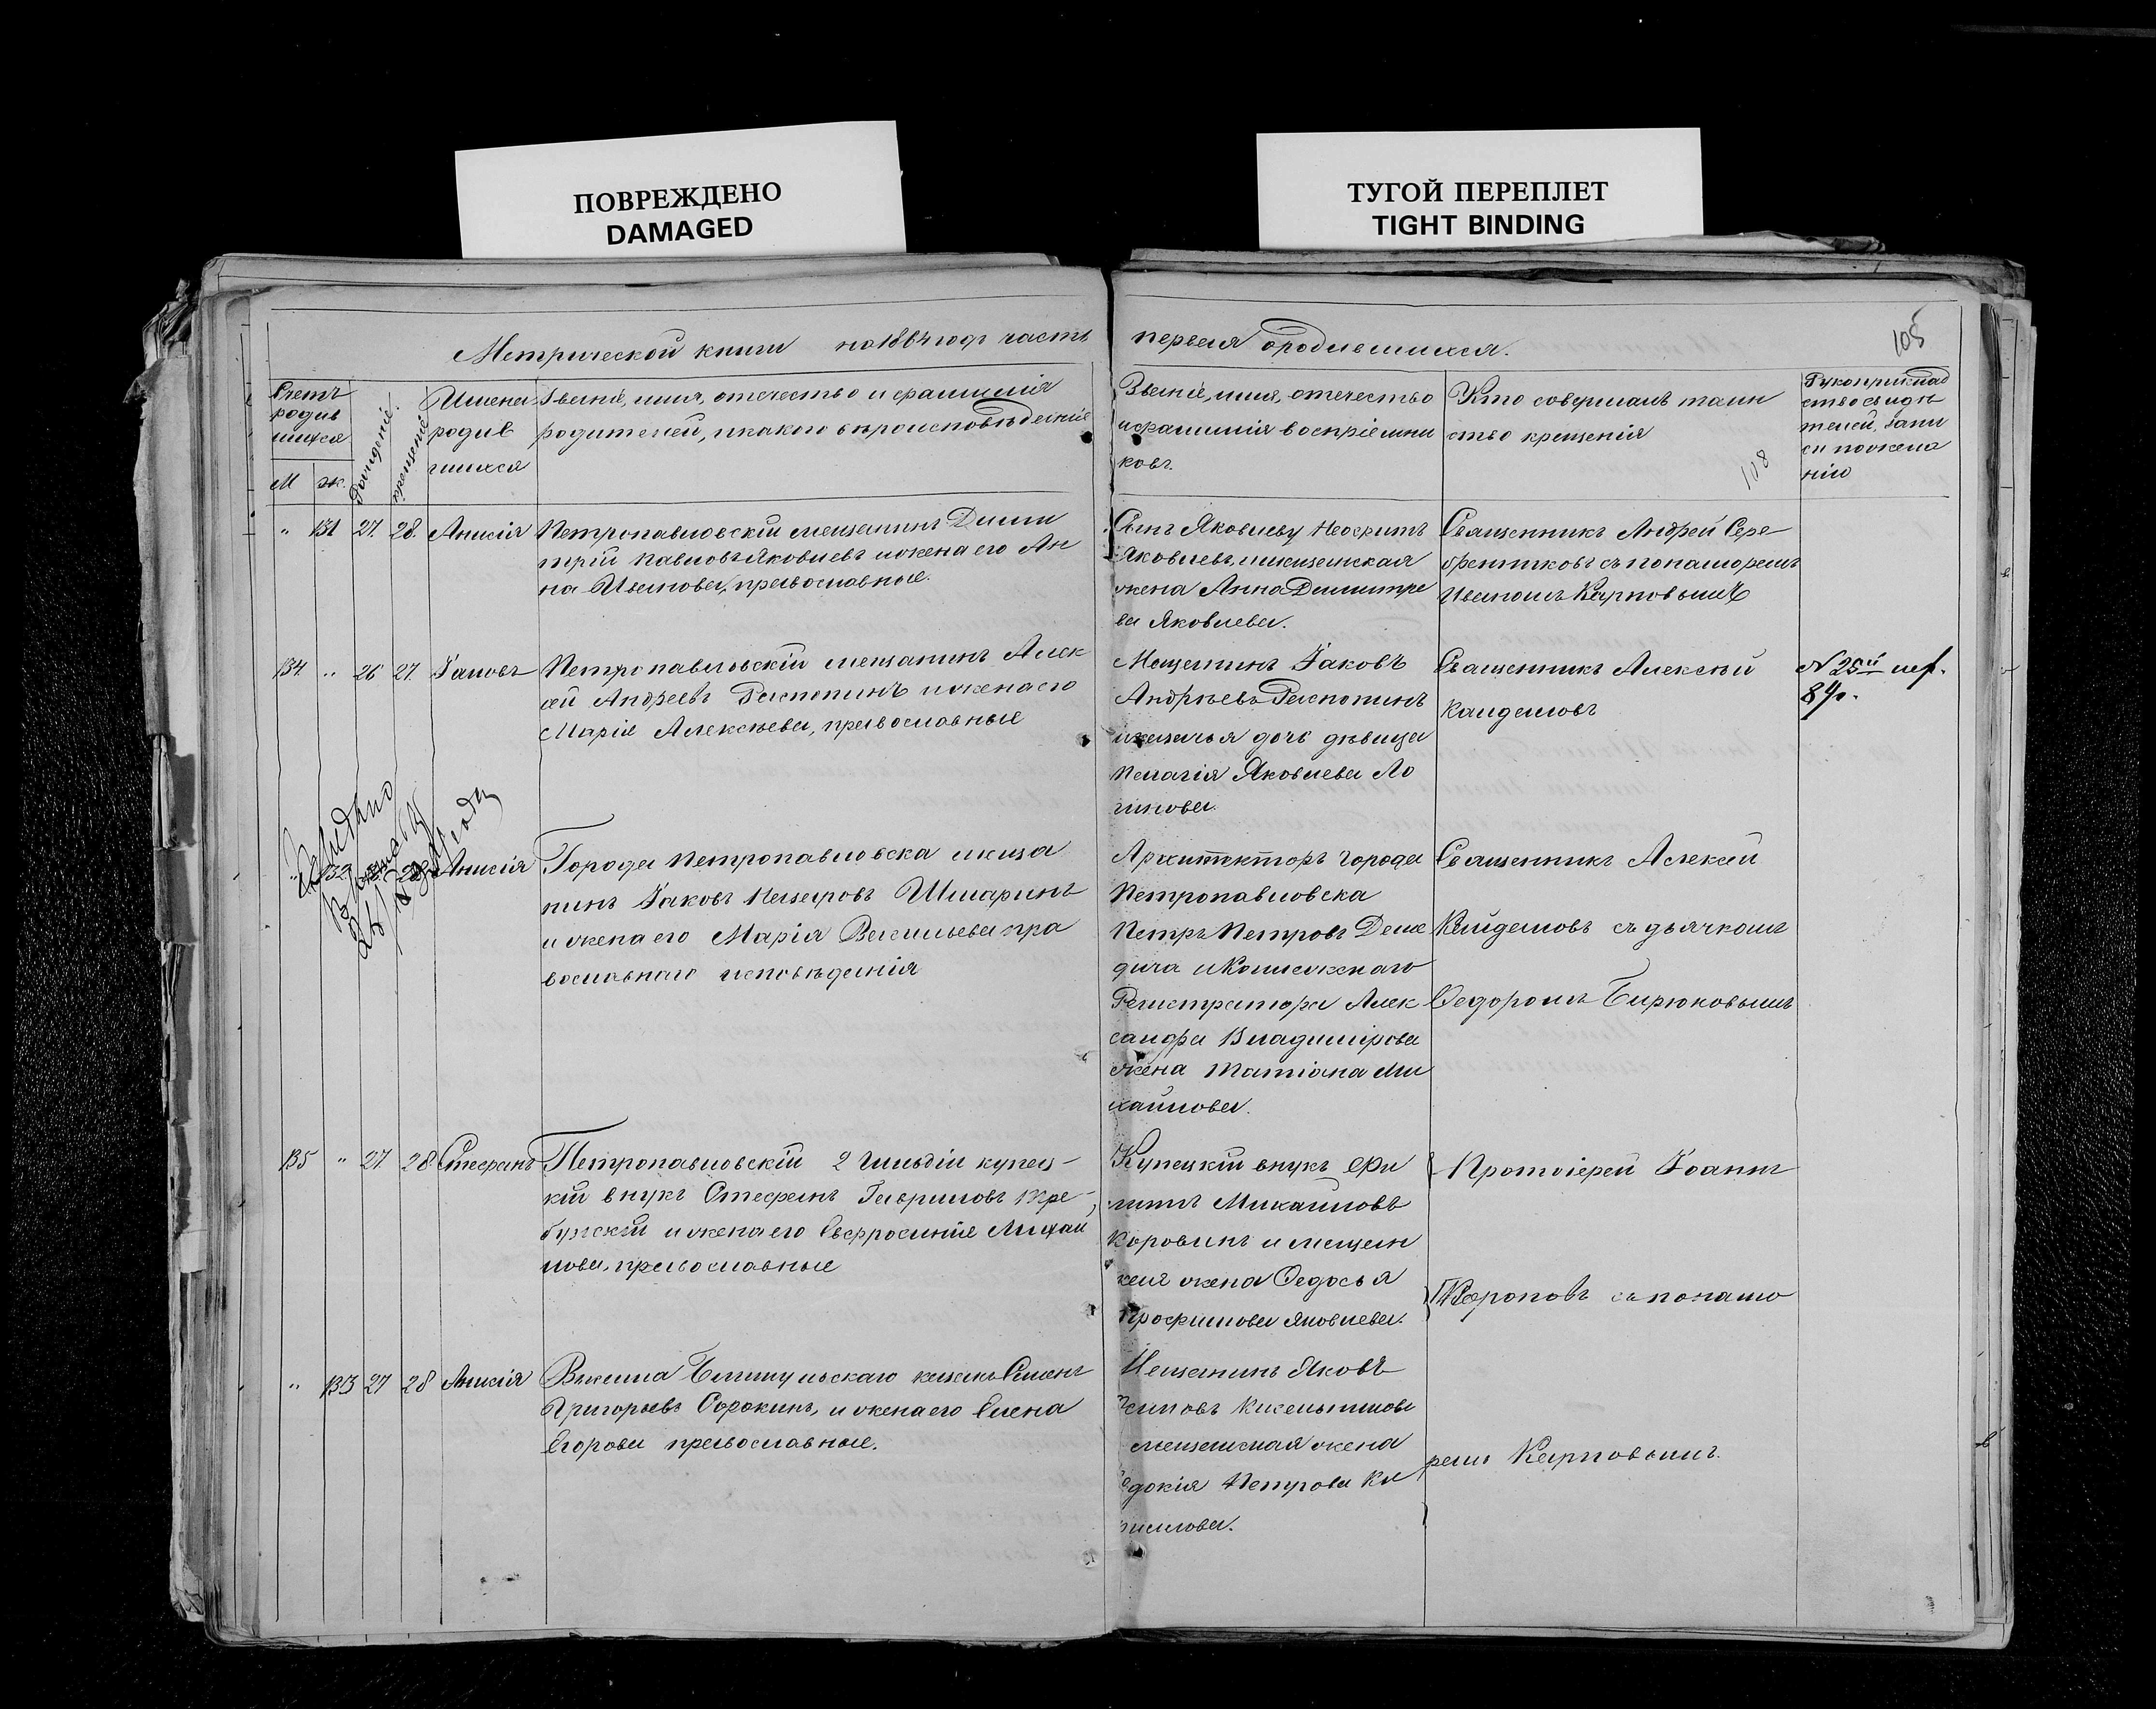 ПОВРЕЖДЕНО
DAMAGED
ТУГОЙ ПЕРЕПЛЕТ
TIGHT BINDING
Метрической книги на 1884 годъ часть
первая о родившихся.
105
Счетъ
родив
шихся
М
ж.
Рожденіе.
крещеніе
Имена
родив
шихся
Званіе, имя, отечество и фамилія
родителей, и какого вѣроисповѣданія
Званіе, имя, отечество
и фамилія воспріемни
ковъ.
Кто совершалъ таин
ство крещенія
118
Рукоприклад
ство свидѣ
телей, запи
си по жела
нію
" 131 27. 28. Анисія
Петропавловскій мещанинъ Дими
трій Павловъ Яковлевъ и жена его Ан
на Иванова, православные.
Сынъ Яковлеву Неофитъ
Яковлевъ, мещанская
жена Анна Димитріе
ва Яковлева.
Священникъ Андрей Сере-
бренниковъ съ понаморемъ
Иваномъ Карповымъ
134. " 26 27. Іаковъ
Петропавловскій мещанинъ Алек
сѣй Андреевъ Распопинъ и жена его
Марія Алексѣева, православные
Мещанинъ Іаковъ
Андрѣевъ Распопинъ
казачья дочь дѣвица
Пелагія Яковлева Ло
гинова.
Священникъ Алексѣй
Кайдаловъ
№ 25й
" 132. 28. Анисія
Города Петропавловска меща
нинъ Іаковъ Назаровъ Шмаринъ
и жена его Марія Васильева пра
вославнаго исповѣданія
Архитекторъ города
Петропавловска
Петръ Петровъ
Регистратора Алек
сандра Владимірова
жена Татіана Ми
хайлова.
Священникъ Алексѣй
Кайдаловъ съ дьячкомъ
Ѳедоромъ Бирюковымъ
135 " 27 28. Стефанъ
Петропавловскій 2 гильдіи купец-
кій внукъ Стефанъ Гавриловъ Тре-
бужскій и жена его Евфросинія Михаи
лова, православные
Купецкій внукъ Фи
липъ Михаиловъ
Коровинъ и мещан
кая жена Ѳедосья
Трофимова Яковлева.
Протоіерей Іоаннъ
съ понамо
ремъ Карповымъ.
" 133 27 28 Анисія
казакъ Семенъ
Григорьевъ Сорокинъ, и жена его Елена
Егорова православные.
Мещанинъ Яковъ
мещанская жена
Петрова